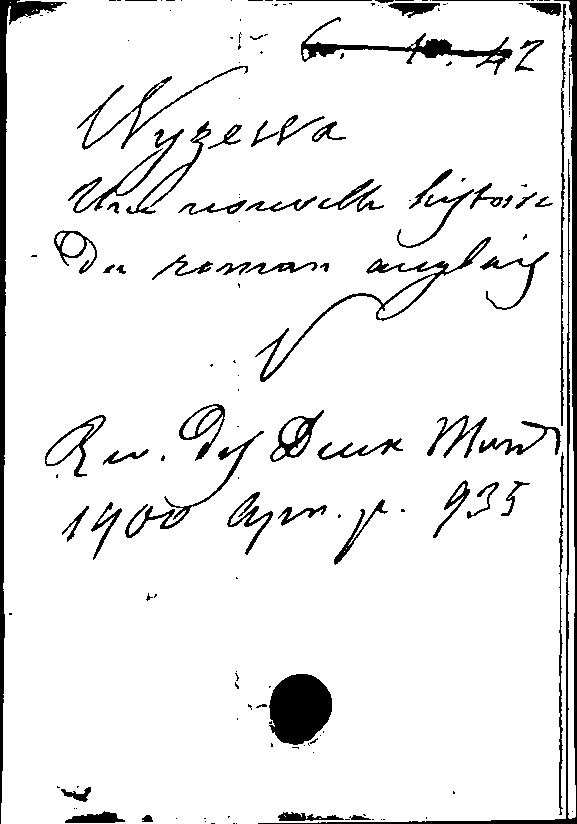 6. 10. 42
Wyzewa
Une nouvelle histoire
Du roman anglais
Rev. des Deux Mond
1900 Apr. p. 935